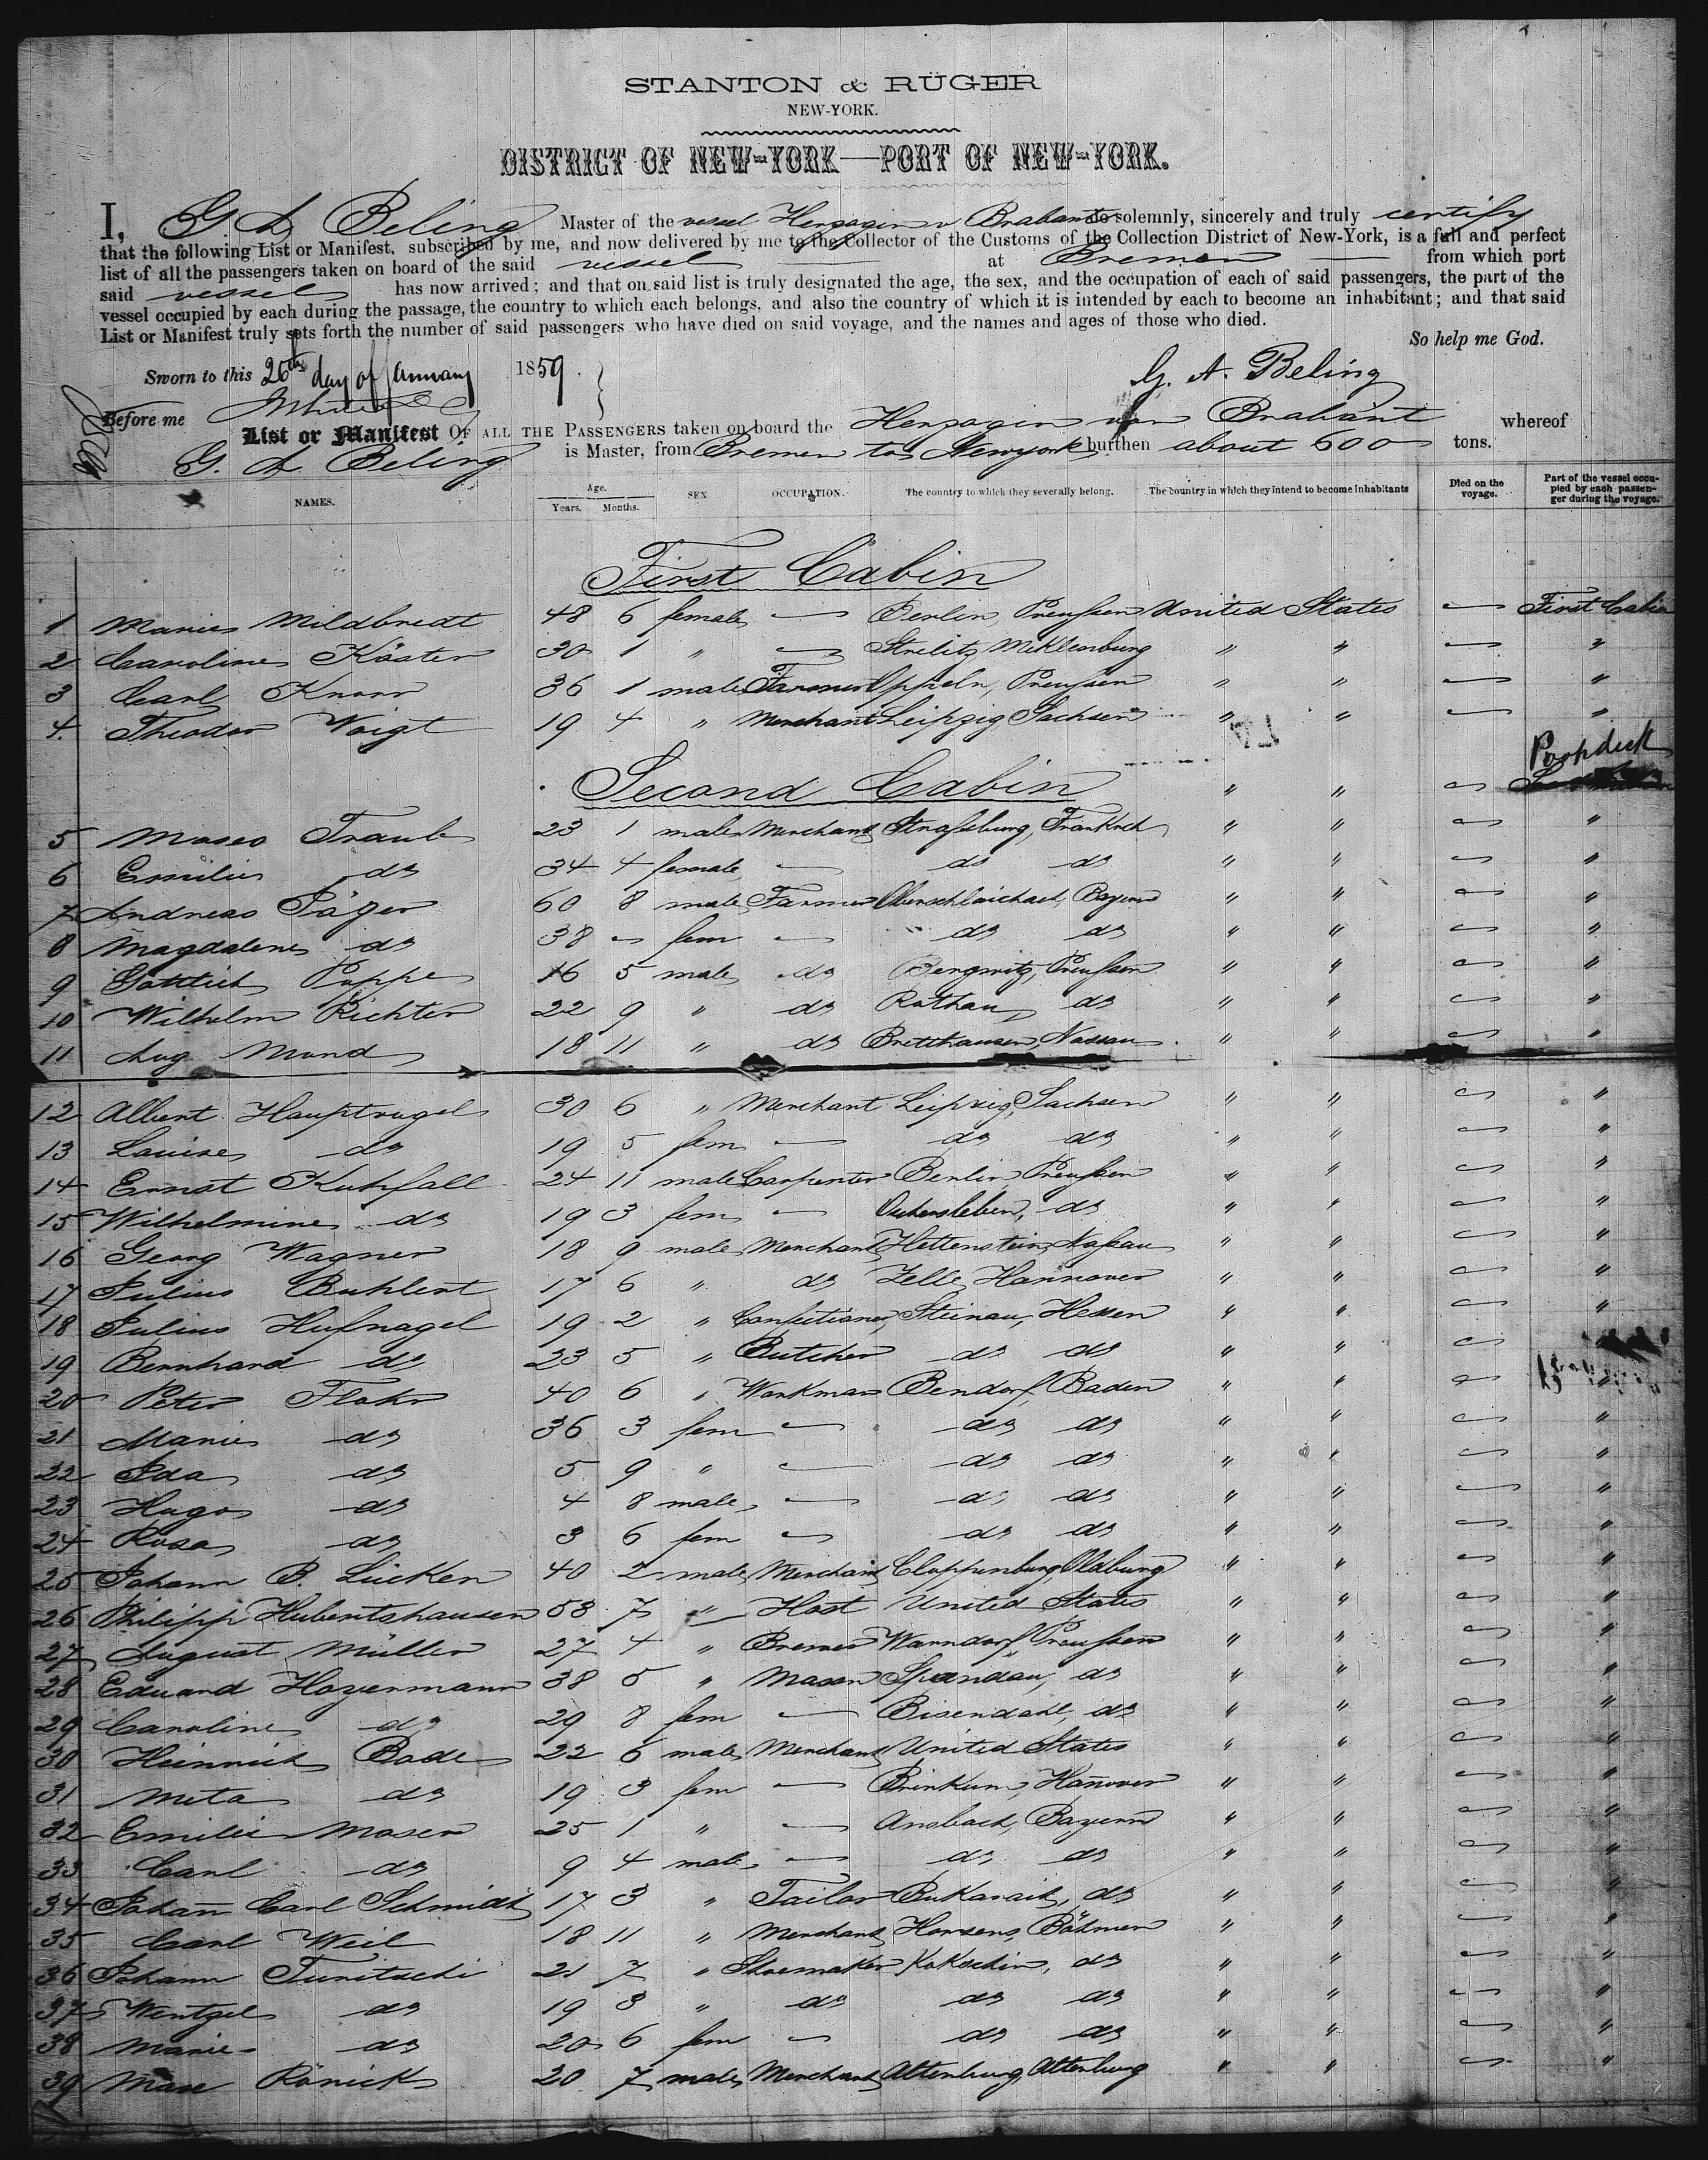 STANTON & RÜGER
NEW-YORK.
DISTRICT OF NEW-YORK—PORT OF NEW-YORK.
I, G. A Beling Master of the vessel Herzogin v Brabant do solemnly, sincerely and truly certify
that the following List or Manifest, subscribed by me, and now delivered by me to the Collector of the Customs of the Collection District of New-York, is a full and perfect
list of all the passengers taken on board of the said vessel at Bremen from which port
said vessel has now arrived; and that on said list is truly designated the age, the sex, and the occupation of each of said passengers, the part of the
vessel occupied by each during the passage, the country to which each belongs, and also the country of which it is intended by each to become an inhabitant; and that said
List or Manifest truly sets forth the number of said passengers who have died on said voyage, and the names and ages of those who died.
So help me God.
Sworn to this 26th day of January 1859.
G. A. Beling
Before me
List or Manifest OF ALL THE PASSENGERS taken on board the Herzogin von Brabant whereof
G. A Beling is Master, from Bremen to Newyork burthen about 600 tons.
NAMES. Age. Years. Months. SEX OCCUPATION. The country to which they severally belong. The country in which they intend to become inhabitants Died on the voyage. Part of the vessel occupied by each passenger during the voyage.
First Cabin
1 Marie Mildbredt 48 6 female — Berlin, Preussen United States — First Cabin
2 Caroline Köster 30 1 " — Strelitz, Meklenburg " " — "
3 Carl Knorr 36 1 male Farmer Oppeln, Preussen " " — "
4. Theodor Voigt 19 4 " Merchant Leipzig, Sachsen " " — "
Poopdeck
Second Cabin " " —
5 Moses Traub 23 1 male Merchant Strassburg, Frankrch " " — "
6 Emilie do 34 4 female — do do " " — "
7 Andreas Jäger 60 8 male Farmer Bayern " " — "
8 Magdalene do 38 — fem — do do " " — "
9 Gottlieb Poppe 16 5 male do Bergwitz, Preussen " " — "
10 Wilhelm Richter 22 9 " do Rothau, do " " — "
11 Aug. Mand 18 11 " do Bretthausen, Nassau " " — "
12 Albert Hauptvogel 30 6 " Merchant Leipzig, Sachsen " " — "
13 Louise do 19 5 fem — do do " " — "
14 Ernst Kuhfall 24 11 male Carpenter Berlin Preussen " " — "
15 Wilhelmine do 19 3 fem — Oschersleben, do " " — "
16 Georg Wagner 18 9 male Merchant Hettenstein, Nassau " " — "
17 Julius Buhlert 17 6 " do Zelle, Hannover " " — "
18 Julius Hufnagel 19 2 " Confectioner, Steinau, Hessen " " — "
19 Bernhard do 23 5 " Butcher do do " " —
20 Peter Flohr 40 6 " Workman Bendorf, Baden " " — "
21 Marie do 36 3 fem — do do " " — "
22 Ida do 5 9 " — do do " " — "
23 Hugo do 4 8 male — do do " " — "
24 Rosa do 3 6 fem — do do " " — "
25 Johann B. Lücken 40 2 male Merchant Cloppenburg, Oldburg " " — "
26 Philipp Hubertshausen 53 7 " Host United States " " — "
27 August Müller 27 4 " Brewer Warndorf Preussen " " — "
28 Eduard Hoyermann 38 5 " Mason Spandau, do " " — "
29 Caroline do 29 8 fem — Bisendahl, do " " — "
30 Heinrich Bode 22 6 male Merchant United States " " — "
31 Meta do 19 3 fem — Brinkum, Hanover " " — "
32 Emilie Moser 25 1 " — Ansbach, Bayern " " — "
33 Carl do 9 4 male — do do " " — "
34 Johann Carl Schmidt 17 3 " Tailor do " " — "
35 Carl Weil 18 11 " Merchant Horsens, Böhmen " " — "
36 Johann Turitschi 21 7 " Shoemaker Kokschin, do " " — "
37 Wentzel do 19 3 " do do do " " — "
38 Marie do 20 6 fem — do do " " — "
39 Max Rönick 20 7 male Merchant Altenburg, Altenburg " " — "